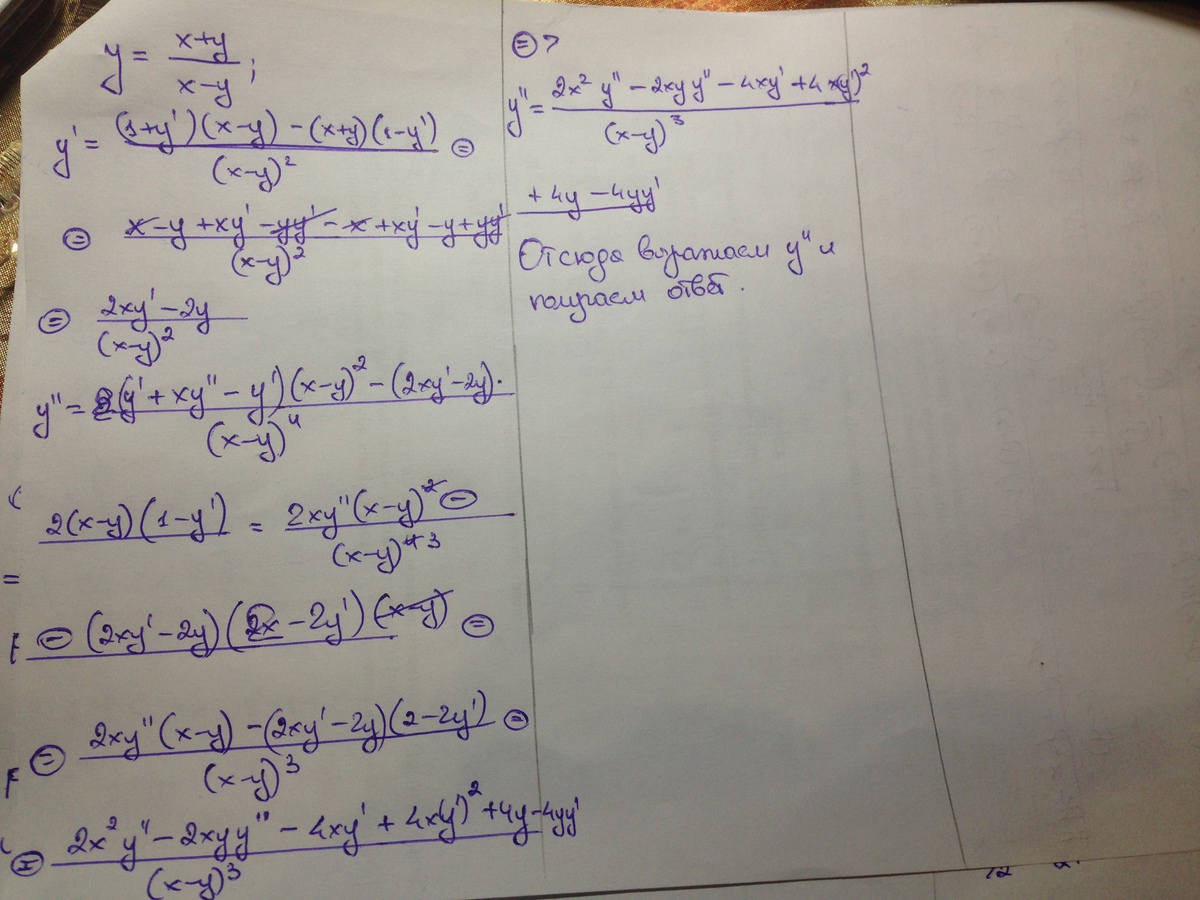 y = (x+y)/(x-y);
y' = ((1+y')(x-y) - (x+y)(1-y'))/(x-y)² =
= (x-y+xy'-yy'-x+xy'-y+yy')/(x-y)²
= (2xy'-2y)/(x-y)²
y'' = (2(y'+xy''-y')(x-y)² - (2xy'-2y)·)/(x-y)⁴
2(x-y)(1-y') = (2xy''(x-y)² -)/(x-y)⁴ ³
- (2xy'-2y)(2x-2y')(x-y) =
= (2xy''(x-y) - (2xy'-2y)(2-2y'))/(x-y)³ =
= (2x²y'' - 2xyy'' - 4xy' + 4x(y')² + 4y - 4yy')/(x-y)³
=>
y'' = (2x²y'' - 2xyy'' - 4xy' + 4x(y')²)/(x-y)³
+ 4y - 4yy'
Отсюда выражаем y'' и
получаем ответ.